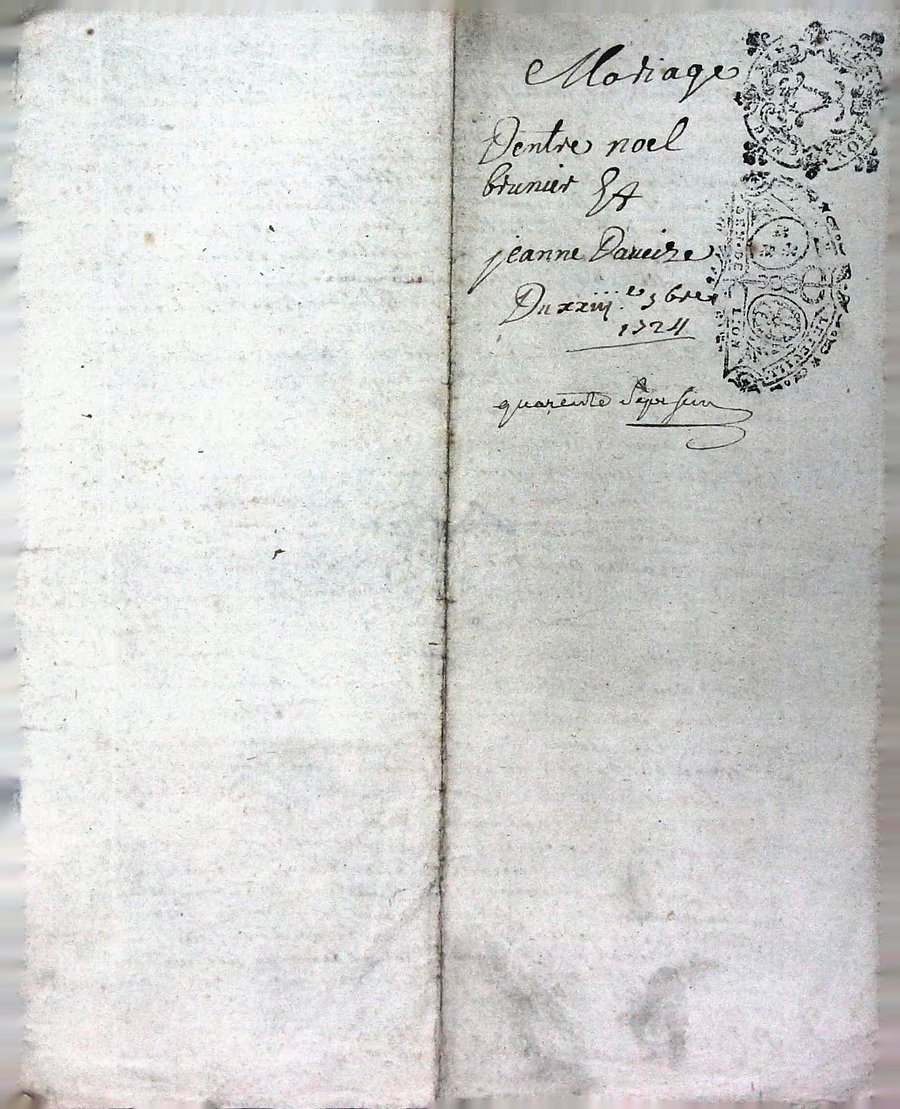 Mariage
Dentre noel
brunier Et
jeanne Daveize
Du xxiij.e 9bre
1724
quarente Sept
LION